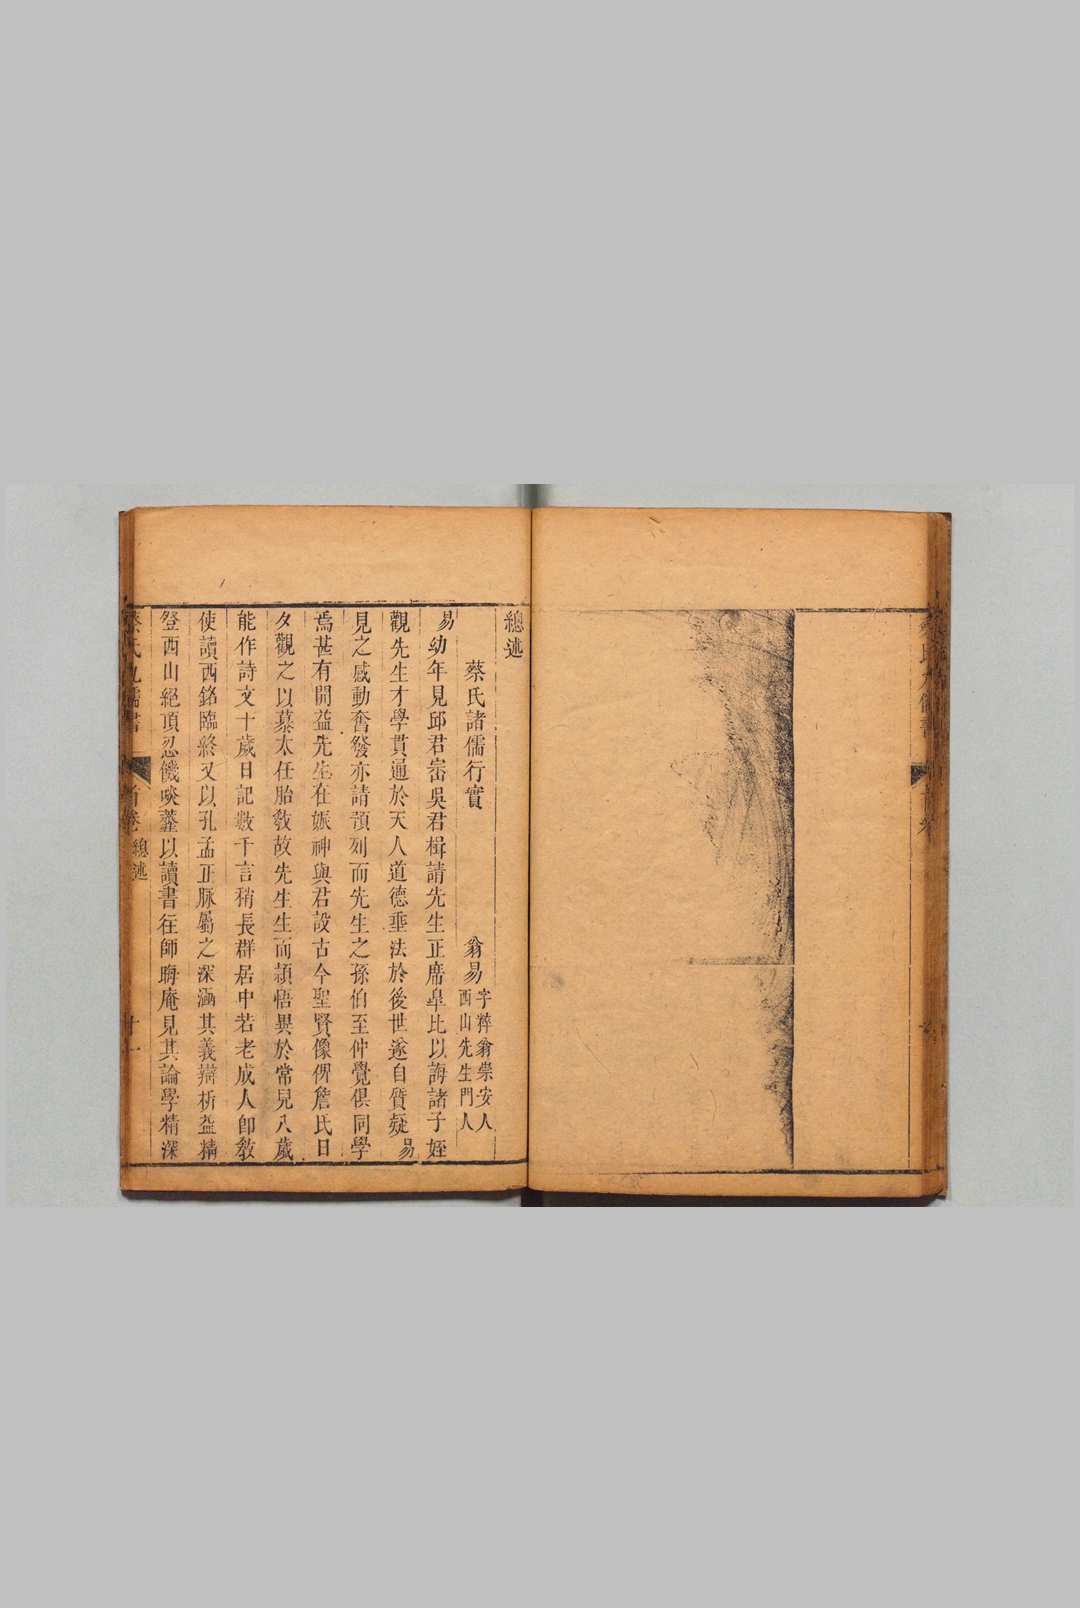 蔡氏九儒書 首卷
總述
蔡氏諸儒行實
翁易 字粹翁崇安人西山先生門人
易幼年見邱君崈吳君楫請先生正席皐比以誨諸子姪
觀先生才學貫通於天人道德垂法於後世遂自質疑易
見之感動奮發亦請預列而先生之孫伯至仲覺俱同學
焉甚有開益先生在娠神與君設古今聖賢像俾詹氏日
夕觀之以慕太任胎敎故先生生而頴悟異於常兒八歲
能作詩文十歲日記數千言稍長群居中若老成人卽敎
使讀西銘臨終又以孔孟正脉屬之深涵其義辯析益精
登西山絕頂忍饑啖虀以讀書往師晦庵見其論學精深
蔡氏九儒書 首卷 總述